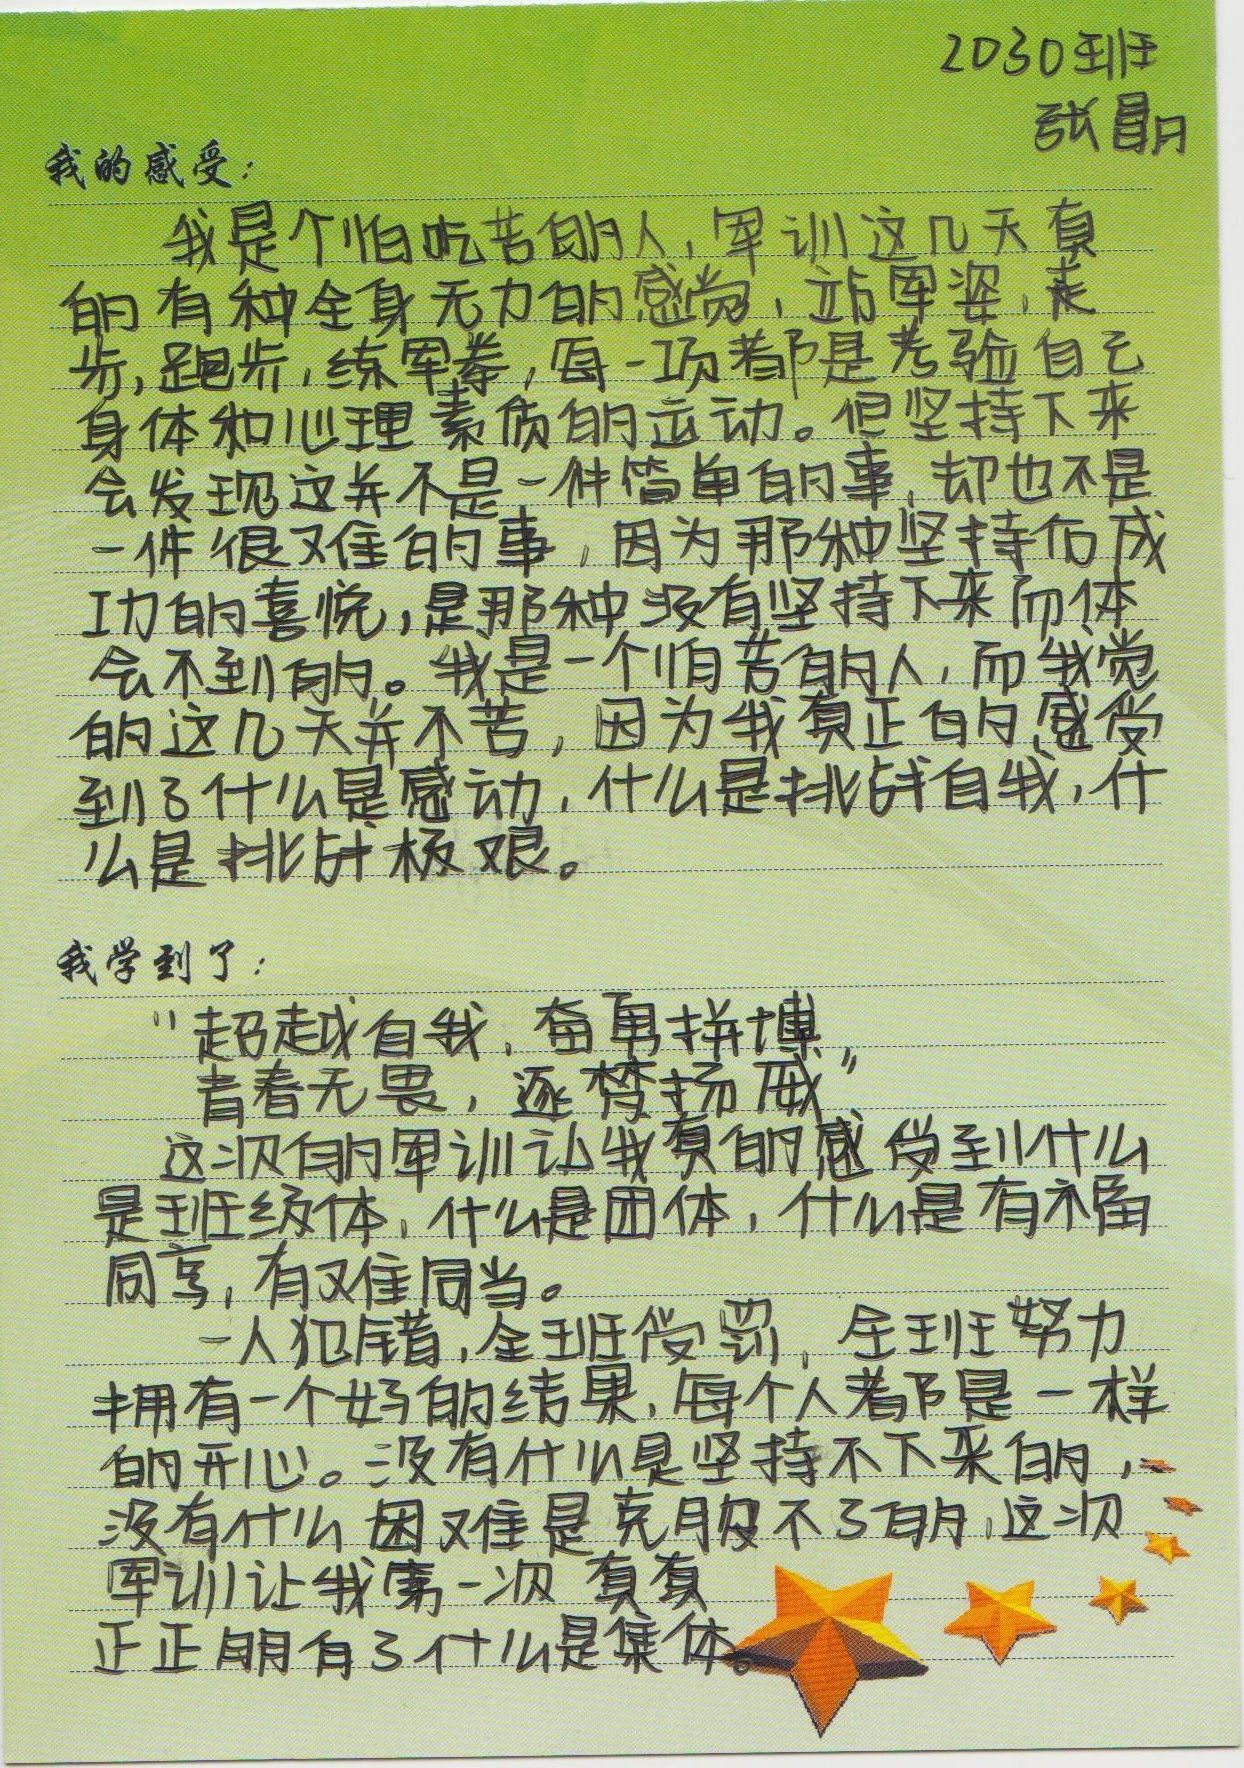 2030班
张
我的感受：
我是个怕吃苦的人，军训这几天真
的有种全身无力的感觉，站军姿，走
步，跑步，练军拳，每一项都是考验自己
身体和心理素质的运动。但坚持下来
会发现这并不是一件简单的事，却也不是
一件很难的事，因为那种坚持后成
功的喜悦，是那种没有坚持下来而体
会不到的。我是一个怕苦的人，而我觉
的这几天并不苦，因为我真正的感受
到了什么是感动，什么是挑战自我，什
么是挑战极艰。
我学到了：
“超越自我，奋勇拼搏，
青春无畏，逐梦扬威”
这次的军训让我真的感受到什么
是班级体，什么是团体，什么是有福
同享，有难同当。
一人犯错，全班受罚，全班努力
拥有一个好的结果，每个人都是一样
的开心。没有什么是坚持不下来的，
没有什么困难是克服不了的，这次
军训让我第一次真真
正正明有了什么是集体。